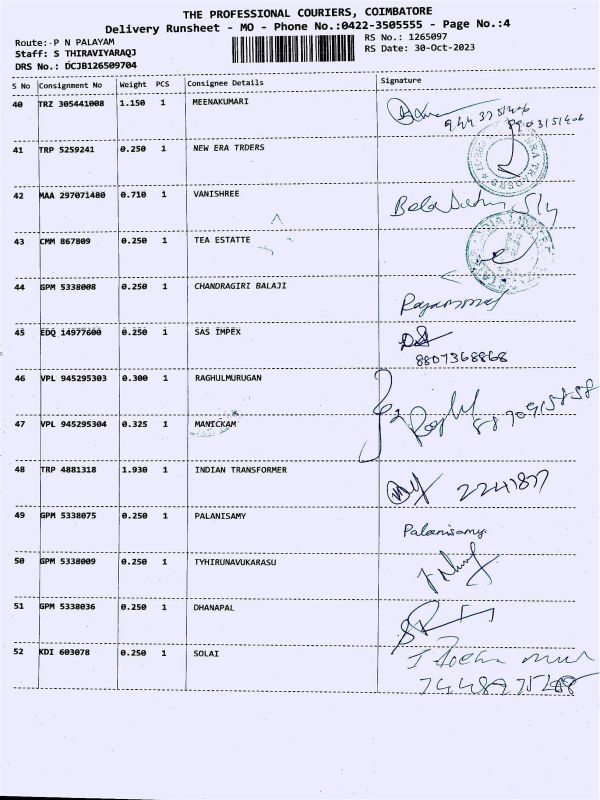 THE PROFESSIONAL COURIERS, COIMBATORE
Delivery Runsheet - MO - Phone No.:0422-3505555 - Page No.:4
Route: P N PALAYAM
RS No.: 1265097
Staff: S THIRAVIYARAQJ
RS Date: 30-Oct-2023
DRS No.: DCJB126509704
S No Consignment No Weight PCS Consignee Details Signature
40 TRZ 305441008 1.150 1 MEENAKUMARI
41 TRP 5259241 0.250 1 NEW ERA TRDERS
42 MAA 297071480 0.710 1 VANISHREE
43 CMM 867809 0.250 1 TEA ESTATTE
44 GPM 5338008 0.250 1 CHANDRAGIRI BALAJI
Rajammal
45 EDQ 14977600 0.250 1 SAS IMPEX
8807368868
46 VPL 945295303 0.300 1 RAGHULMURUGAN
47 VPL 945295304 0.325 1 MANICKAM
48 TRP 4881318 1.930 1 INDIAN TRANSFORMER
2241877
49 GPM 5338075 0.250 1 PALANISAMY
Palanisamy
50 GPM 5338009 0.250 1 TYHIRUNAVUKARASU
51 GPM 5338036 0.250 1 DHANAPAL
52 KDI 603078 0.250 1 SOLAI